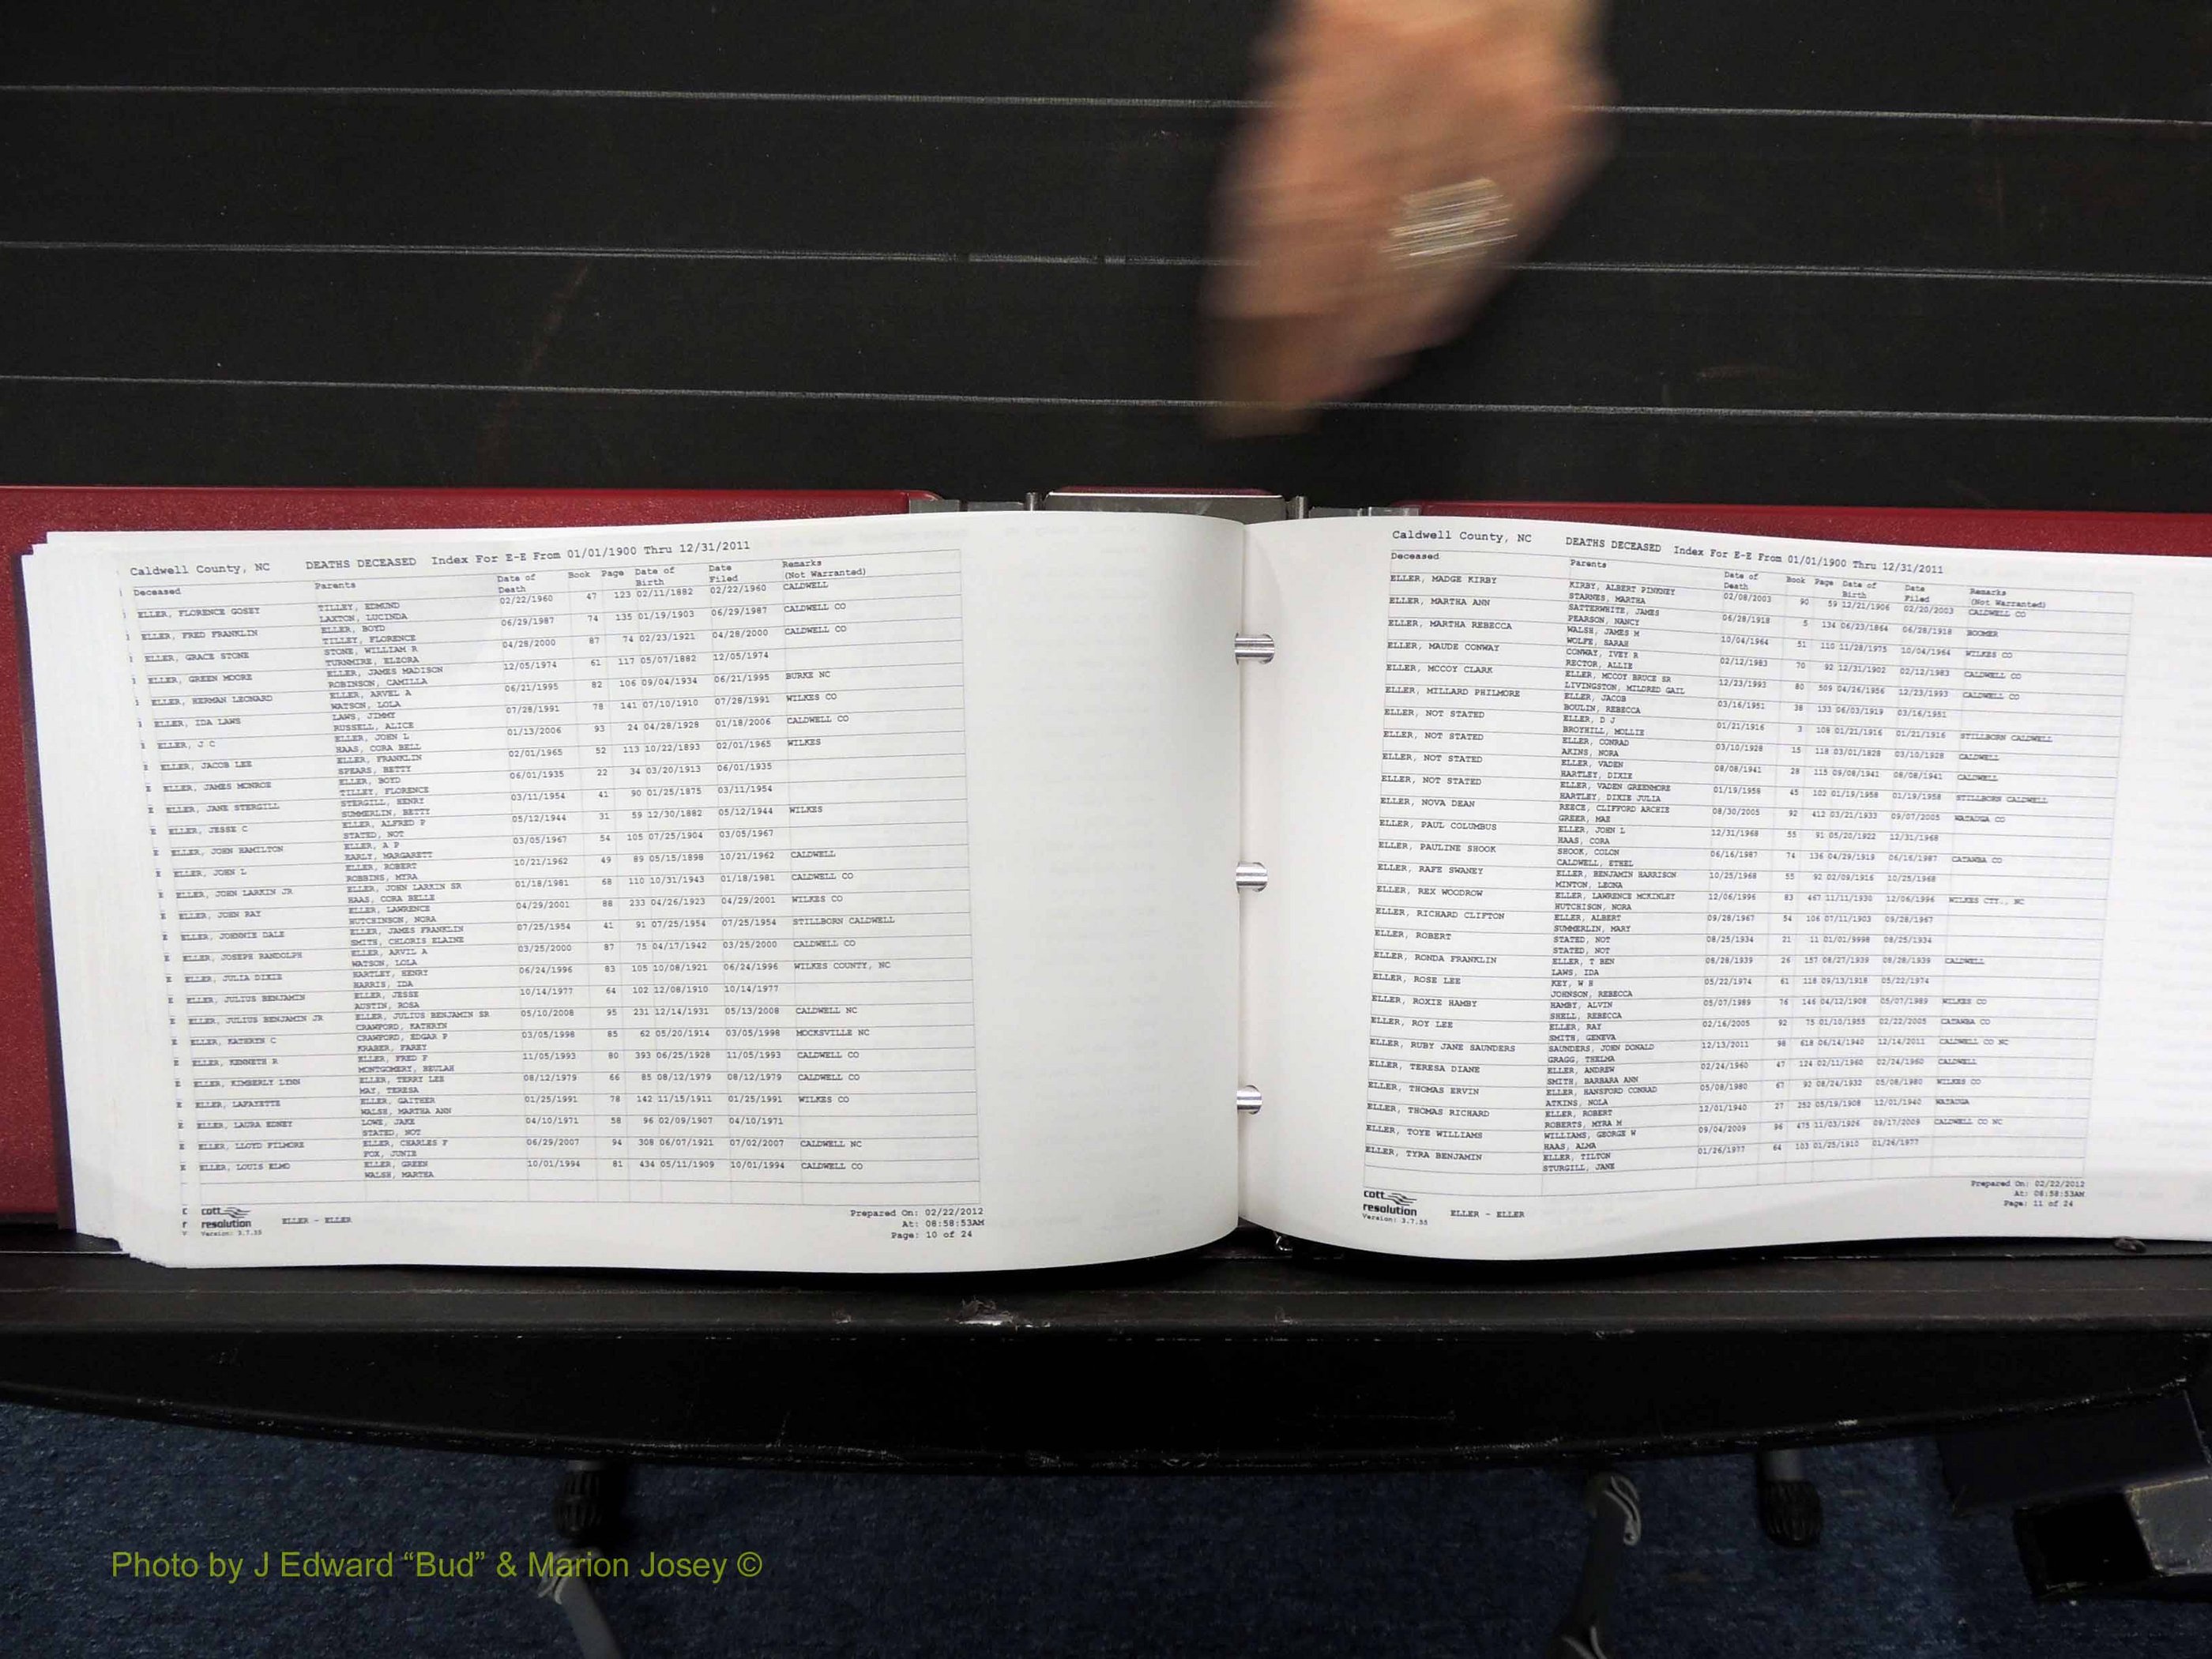 Caldwell County, NC DEATHS DECEASED Index For E-E From 01/01/1900 Thru 12/31/2011
Deceased Parents Date of Death Book Page Date of Birth Date Filed Remarks (Not Warranted)
ELLER, FLORENCE GOSEY TILLEY, EDMUND 02/22/1960 47 123 02/11/1882 02/22/1960 CALDWELL
LAXTON, LUCINDA
ELLER, FRED FRANKLIN ELLER, BOYD 06/29/1987 74 135 01/19/1903 06/29/1987 CALDWELL CO
TILLEY, FLORENCE
ELLER, GRACE STONE STONE, WILLIAM R 04/28/2000 87 74 02/23/1921 04/28/2000 CALDWELL CO
TURNMIRE, ELZORA
ELLER, GREEN MOORE ELLER, JAMES MADISON 12/05/1974 61 117 05/07/1882 12/05/1974
ROBINSON, CAMILLA
ELLER, HERMAN LEONARD ELLER, ARVEL A 06/21/1995 82 106 09/04/1934 06/21/1995 BURKE NC
WATSON, LOLA
ELLER, IDA LAWS LAWS, JIMMY 07/28/1991 78 141 07/10/1910 07/28/1991 WILKES CO
RUSSELL, ALICE
ELLER, J C ELLER, JOHN L 01/13/2006 93 24 04/28/1928 01/18/2006 CALDWELL CO
HAAS, CORA BELL
ELLER, JACOB LEE ELLER, FRANKLIN 02/01/1965 52 113 10/22/1893 02/01/1965 WILKES
SPEARS, BETTY
ELLER, JAMES MONROE ELLER, BOYD 06/01/1935 22 34 03/20/1913 06/01/1935
TILLEY, FLORENCE
ELLER, JANE STERGILL STERGILL, HENRY 03/11/1954 41 90 01/25/1875 03/11/1954
SUMMERLIN, BETTY
ELLER, JESSE C ELLER, ALFRED P 05/12/1944 31 59 12/30/1882 05/12/1944 WILKES
STATED, NOT
ELLER, JOHN HAMILTON ELLER, A P 03/05/1967 54 105 07/25/1904 03/05/1967
EARLY, MARGARETT
ELLER, JOHN L ELLER, ROBERT 10/21/1962 49 89 05/15/1898 10/21/1962 CALDWELL
ROBBINS, MYRA
ELLER, JOHN LARKIN JR ELLER, JOHN LARKIN SR 01/18/1981 68 110 10/31/1943 01/18/1981 CALDWELL CO
HAAS, CORA BELLE
ELLER, JOHN RAY ELLER, LAWRENCE 04/29/2001 88 233 04/26/1923 04/29/2001 WILKES CO
HUTCHINSON, NORA
ELLER, JOHNNIE DALE ELLER, JAMES FRANKLIN 07/25/1954 41 91 07/25/1954 07/25/1954 STILLBORN CALDWELL
SMITH, CHLORIS ELAINE
ELLER, JOSEPH RANDOLPH ELLER, ARVIL A 03/25/2000 87 75 04/17/1942 03/25/2000 CALDWELL CO
WATSON, LOLA
ELLER, JULIA DIXIE HARTLEY, HENRY 06/24/1996 83 105 10/08/1921 06/24/1996 WILKES COUNTY, NC
HARRIS, IDA
ELLER, JULIUS BENJAMIN ELLER, JESSE 10/14/1977 64 102 12/08/1910 10/14/1977
AUSTIN, ROSA
ELLER, JULIUS BENJAMIN JR ELLER, JULIUS BENJAMIN SR 05/10/2008 95 231 12/14/1931 05/13/2008 CALDWELL NC
CRAWFORD, KATHRYN
ELLER, KATHRYN C CRAWFORD, EDGAR P 03/05/1998 85 62 05/20/1914 03/05/1998 MOCKSVILLE NC
KRABER, FAREY
ELLER, KENNETH R ELLER, FRED F 11/05/1993 80 393 06/25/1928 11/05/1993 CALDWELL CO
MONTGOMERY, BEULAH
ELLER, KIMBERLY LYNN ELLER, TERRY LEE 08/12/1979 66 85 08/12/1979 08/12/1979 CALDWELL CO
MAY, TERESA
ELLER, LAFAYETTE ELLER, GAITHER 01/25/1991 78 142 11/15/1911 01/25/1991 WILKES CO
WALSH, MARTHA ANN
ELLER, LAURA EDNEY LOWE, JAKE 04/10/1971 58 96 02/09/1907 04/10/1971
STATED, NOT
ELLER, LLOYD FILMORE ELLER, CHARLES F 06/29/2007 94 308 06/07/1921 07/02/2007 CALDWELL NC
FOX, JUNIE
ELLER, LOUIS ELMO ELLER, GREEN 10/01/1994 81 434 05/11/1909 10/01/1994 CALDWELL CO
WALSH, MARTHA
cott
resolution
Version: 3.7.55
ELLER - ELLER
Prepared On: 02/22/2012
At: 08:58:53AM
Page: 10 of 24
Caldwell County, NC DEATHS DECEASED Index For E-E From 01/01/1900 Thru 12/31/2011
Deceased Parents Date of Death Book Page Date of Birth Date Filed Remarks (Not Warranted)
ELLER, MADGE KIRBY KIRBY, ALBERT PINKNEY 02/08/2003 90 59 12/21/1906 02/20/2003 CALDWELL CO
STARNES, MARTHA
ELLER, MARTHA ANN SATTERWHITE, JAMES 06/28/1918 5 134 06/23/1864 06/28/1918 BOOMER
PEARSON, NANCY
ELLER, MARTHA REBECCA WALSH, JAMES M 10/04/1964 51 110 11/28/1975 10/04/1964 WILKES CO
WOLFE, SARAH
ELLER, MAUDE CONWAY CONWAY, IVEY R 02/12/1983 70 92 12/31/1902 02/12/1983 CALDWELL CO
RECTOR, ALLIE
ELLER, MCCOY CLARK ELLER, MCCOY BRUCE SR 12/23/1993 80 509 04/26/1956 12/23/1993 CALDWELL CO
LIVINGSTON, MILDRED GAIL
ELLER, MILLARD PHILMORE ELLER, JACOB 03/16/1951 38 133 06/03/1919 03/16/1951
BOULIN, REBECCA
ELLER, NOT STATED ELLER, D J 01/21/1916 3 108 01/21/1916 01/21/1916 STILLBORN CALDWELL
BROYHILL, MOLLIE
ELLER, NOT STATED ELLER, CONRAD 03/10/1928 15 118 03/01/1828 03/10/1928 CALDWELL
AKINS, NORA
ELLER, NOT STATED ELLER, VADEN 08/08/1941 28 115 09/08/1941 08/08/1941 CALDWELL
HARTLEY, DIXIE
ELLER, NOT STATED ELLER, VADEN GREENMORE 01/19/1958 45 102 01/19/1958 01/19/1958 STILLBORN CALDWELL
HARTLEY, DIXIE JULIA
ELLER, NOVA DEAN REECE, CLIFFORD ARCHIE 08/30/2005 92 412 03/21/1933 09/07/2005 WATAUGA CO
GREER, MAE
ELLER, PAUL COLUMBUS ELLER, JOHN L 12/31/1968 55 91 05/20/1922 12/31/1968
HAAS, CORA
ELLER, PAULINE SHOOK SHOOK, COLON 06/16/1987 74 136 04/29/1919 06/16/1987 CATAWBA CO
CALDWELL, ETHEL
ELLER, RAFE SWANEY ELLER, BENJAMIN HARRISON 10/25/1968 55 92 02/09/1916 10/25/1968
MINTON, LEONA
ELLER, REX WOODROW ELLER, LAWRENCE MCKINLEY 12/06/1996 83 467 11/11/1930 12/06/1996 WILKES CTY., NC
HUTCHISON, NORA
ELLER, RICHARD CLIFTON ELLER, ALBERT 09/28/1967 54 106 07/11/1903 09/28/1967
SUMMERLIN, MARY
ELLER, ROBERT STATED, NOT 08/25/1934 21 11 01/01/9998 08/25/1934
STATED, NOT
ELLER, RONDA FRANKLIN ELLER, T BEN 08/28/1939 26 157 08/27/1939 08/28/1939 CALDWELL
LAWS, IDA
ELLER, ROSE LEE KEY, W H 05/22/1974 61 118 09/13/1918 05/22/1974
JOHNSON, REBECCA
ELLER, ROXIE HAMBY HAMBY, ALVIN 05/07/1989 76 146 04/12/1908 05/07/1989 WILKES CO
SHELL, REBECCA
ELLER, ROY LEE ELLER, RAY 02/16/2005 92 75 01/10/1955 02/22/2005 CATAWBA CO
SMITH, GENEVA
ELLER, RUBY JANE SAUNDERS SAUNDERS, JOHN DONALD 12/13/2011 98 618 06/14/1940 12/14/2011 CALDWELL CO NC
GRAGG, THELMA
ELLER, TERESA DIANE ELLER, ANDREW 02/24/1960 47 124 02/11/1960 02/24/1960 CALDWELL
SMITH, BARBARA ANN
ELLER, THOMAS ERVIN ELLER, HANSFORD CONRAD 05/08/1980 67 92 08/24/1932 05/08/1980 WILKES CO
ATKINS, NOLA
ELLER, THOMAS RICHARD ELLER, ROBERT 12/01/1940 27 252 05/19/1908 12/01/1940 WATAUGA
ROBERTS, MYRA M
ELLER, TOYE WILLIAMS WILLIAMS, GEORGE W 09/04/2009 96 475 11/03/1926 09/17/2009 CALDWELL CO NC
HAAS, ALMA
ELLER, TYRA BENJAMIN ELLER, TILTON 01/26/1977 64 103 01/25/1910 01/26/1977
STURGILL, JANE
cott
resolution
Version: 3.7.55
ELLER - ELLER
Prepared On: 02/22/2012
At: 08:58:53AM
Page: 11 of 24
Photo by J Edward “Bud” & Marion Josey ©